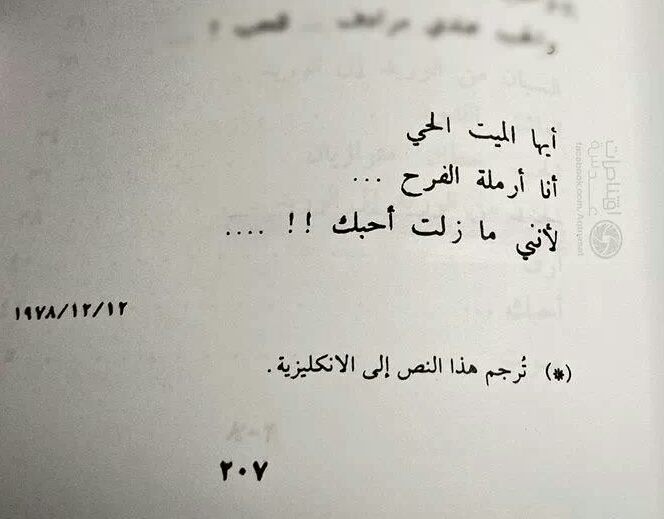 أيها الميت الحي
أنا أرملة الفرح ...
لأنني ما زلت أحبك !! ....
١٩٧٨/١٢/١٢
(*) تُرجم هذا النص إلى الانكليزية.
٢٠٧